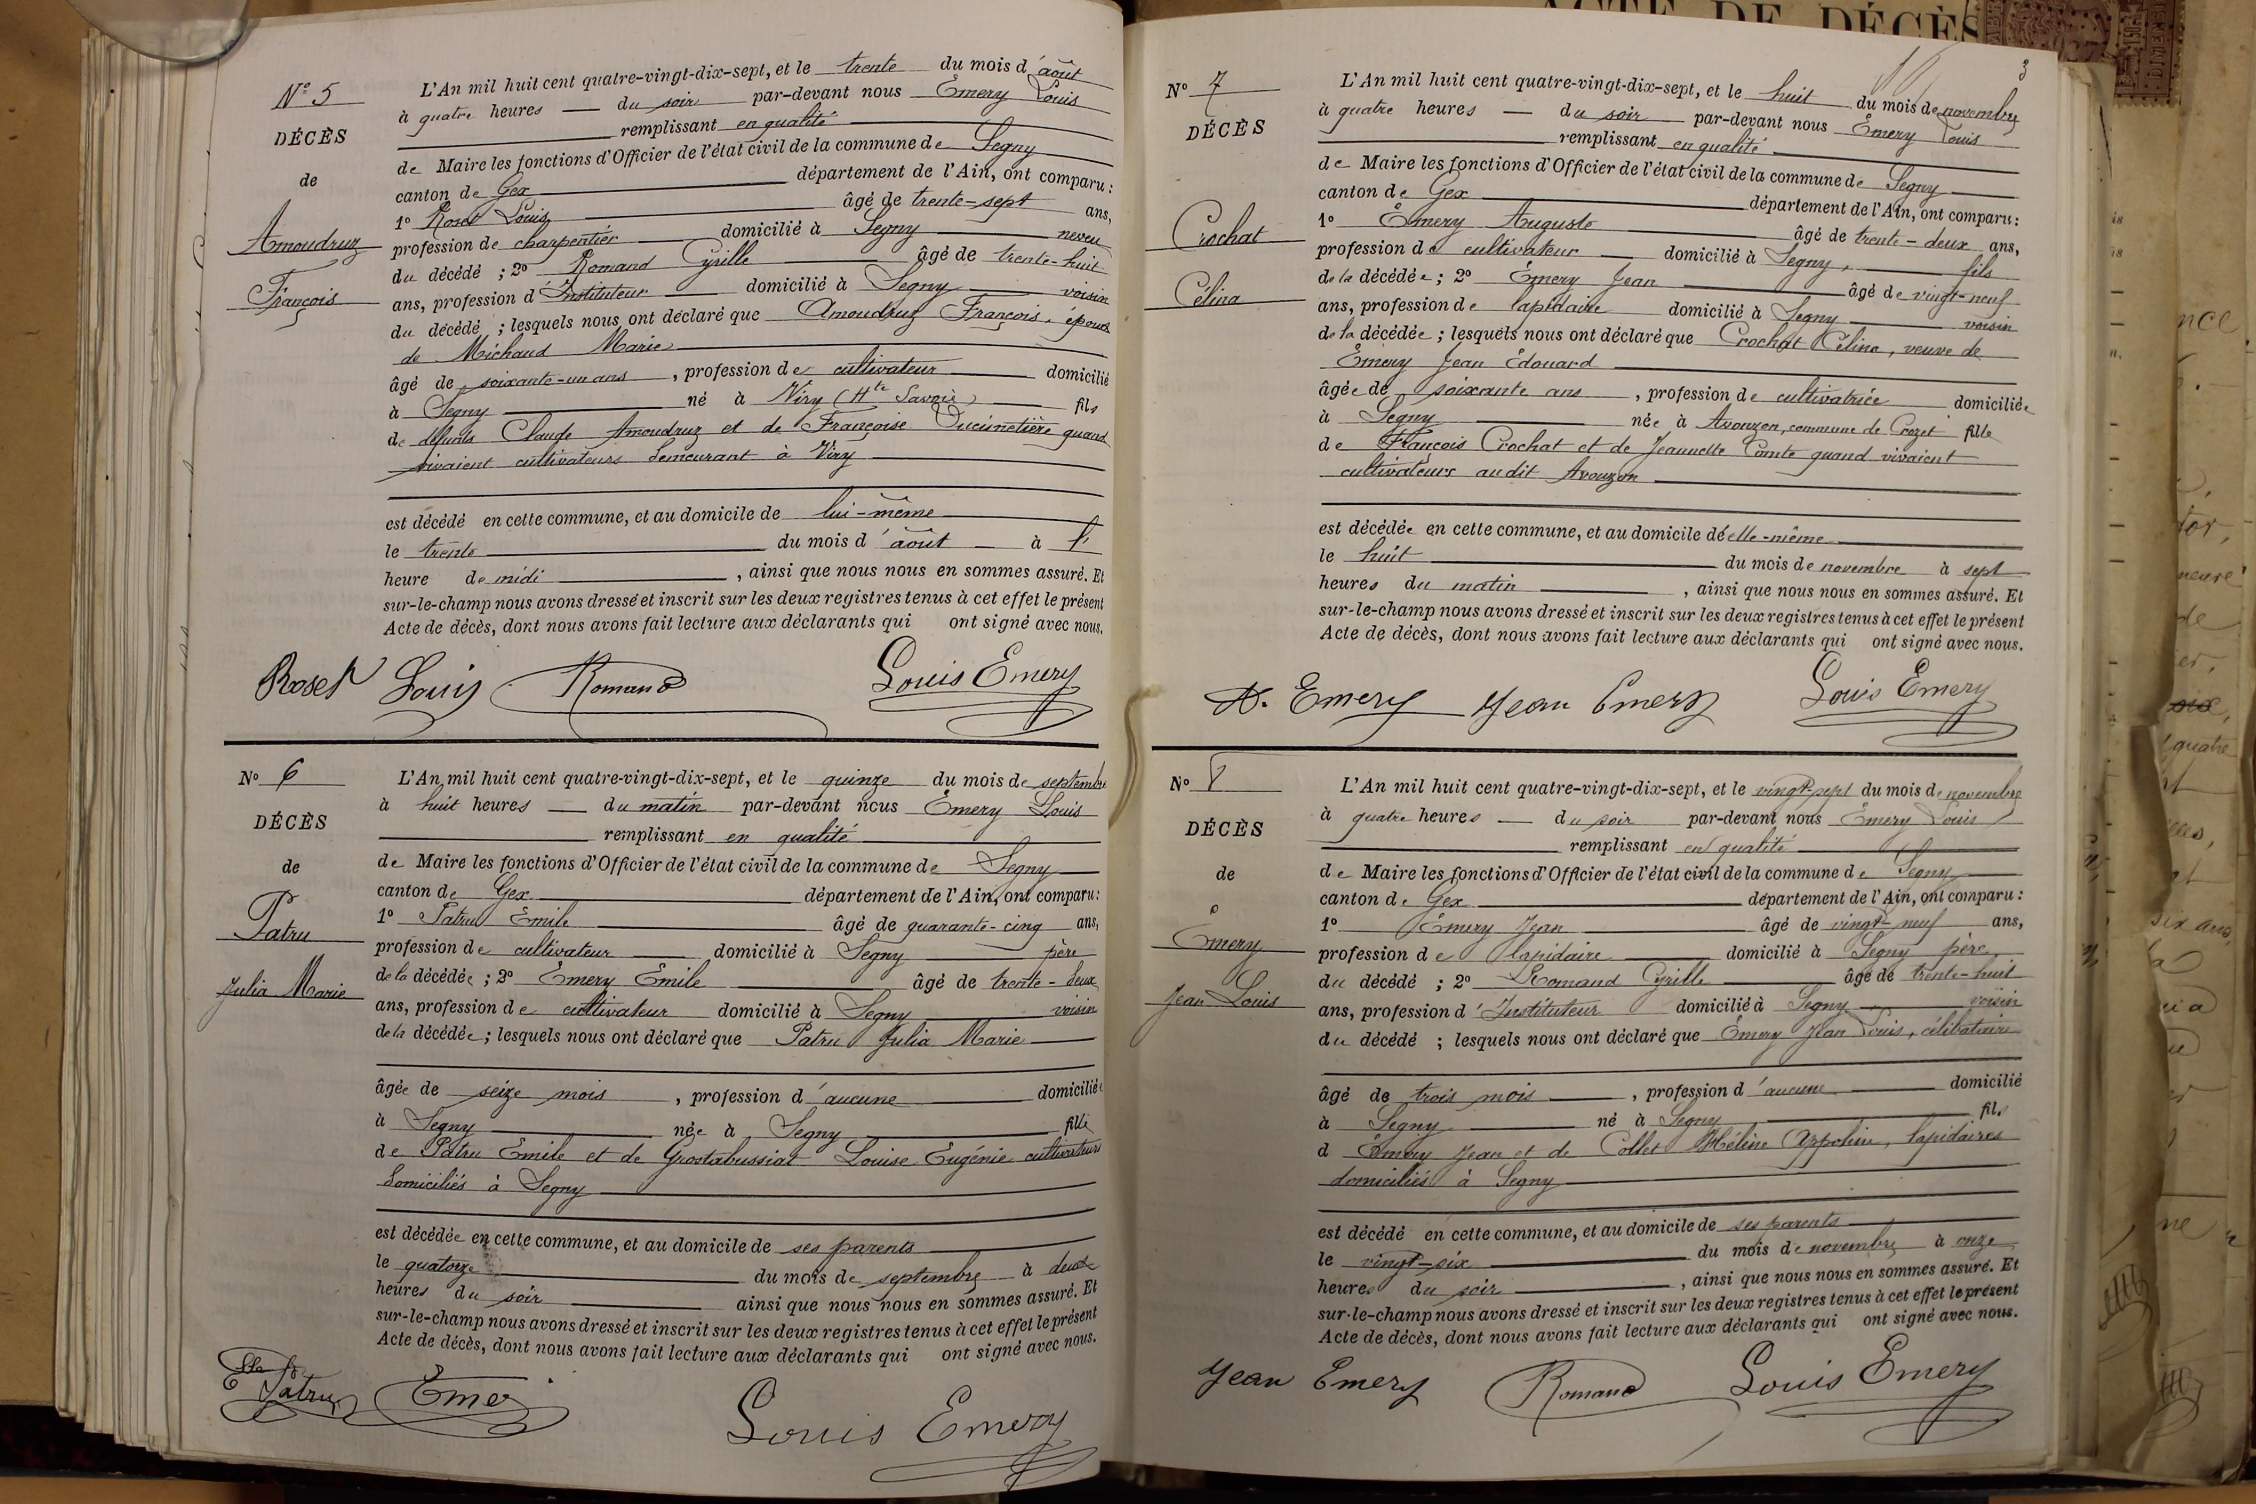 ACTE DE DÉCÈS
N° 5
DÉCÈS
de
Amoudruz
François
L'An mil huit cent quatre-vingt-dix-sept, et le trente du mois d'août
à quatre heures du soir par-devant nous Emery Louis
remplissant en qualité
de Maire les fonctions d'Officier de l'état civil de la commune de Segny
canton de Gex département de l'Ain, ont comparu:
1° Roset Louis âgé de trente-sept ans,
profession de charpentier domicilié à Segny neveu
du décédé ; 2° Romand Cyrille âgé de trente-huit
ans, profession d'Instituteur domicilié à Segny voisin
du décédé ; lesquels nous ont déclaré que Amoudruz François, époux
de Michaud Marie
âgé de soixante-un ans, profession de cultivateur domicilié
à Segny né à Viry (Hte Savoie) fils
de défunts Claude Amoudruz et de Françoise Ducimetière quand
vivaient cultivateurs demeurant à Viry
est décédé en cette commune, et au domicile de lui-même
le trente du mois d'août à 1
heure de midi, ainsi que nous nous en sommes assuré. Et
sur-le-champ nous avons dressé et inscrit sur les deux registres tenus à cet effet le présent
Acte de décès, dont nous avons fait lecture aux déclarants qui ont signé avec nous.
Roset Louis Romand Louis Emery
N° 6
DÉCÈS
de
Patru
Julia Marie
L'An mil huit cent quatre-vingt-dix-sept, et le quinze du mois de septembre
à huit heures du matin par-devant nous Emery Louis
remplissant en qualité
de Maire les fonctions d'Officier de l'état civil de la commune de Segny
canton de Gex département de l'Ain, ont comparu:
1° Patru Emile âgé de quarante-cinq ans,
profession de cultivateur domicilié à Segny père
de la décédée ; 2° Emery Emile âgé de trente-deux
ans, profession de cultivateur domicilié à Segny voisin
de la décédée ; lesquels nous ont déclaré que Patru Julia Marie
âgée de seize mois, profession d'aucune domiciliée
à Segny née à Segny fille
de Patru Emile et de Grostabussiat Louise Eugénie cultivateurs
domiciliés à Segny
est décédée en cette commune, et au domicile de ses parents
le quatorze du mois de septembre à deux
heures du soir ainsi que nous nous en sommes assuré. Et
sur-le-champ nous avons dressé et inscrit sur les deux registres tenus à cet effet le présent
Acte de décès, dont nous avons fait lecture aux déclarants qui ont signé avec nous.
Patru Emery Louis Emery
3
N° 7
DÉCÈS
Crochat
Célina
L'An mil huit cent quatre-vingt-dix-sept, et le huit du mois de novembre
à quatre heures du soir par-devant nous Emery Louis
remplissant en qualité
de Maire les fonctions d'Officier de l'état civil de la commune de Segny
canton de Gex département de l'Ain, ont comparu:
1° Emery Auguste âgé de trente-deux ans,
profession de cultivateur domicilié à Segny, fils
de la décédée ; 2° Emery Jean âgé de vingt-neuf
ans, profession de lapidaire domicilié à Segny voisin
de la décédée ; lesquels nous ont déclaré que Crochat Célina, veuve de
Emery Jean Edouard
âgée de soixante ans, profession de cultivatrice domiciliée
à Segny née à Avouzon, commune de Crozet fille
de François Crochat et de Jeannette Comte quand vivaient
cultivateurs audit Avouzon
est décédée en cette commune, et au domicile d'elle-même
le huit du mois de novembre à sept
heures du matin, ainsi que nous nous en sommes assuré. Et
sur-le-champ nous avons dressé et inscrit sur les deux registres tenus à cet effet le présent
Acte de décès, dont nous avons fait lecture aux déclarants qui ont signé avec nous.
A. Emery Jean Emery Louis Emery
N° 8
DÉCÈS
de
Emery
Jean Louis
L'An mil huit cent quatre-vingt-dix-sept, et le vingt-sept du mois de novembre
à quatre heures du soir par-devant nous Emery Louis
remplissant en qualité
de Maire les fonctions d'Officier de l'état civil de la commune de Segny
canton de Gex département de l'Ain, ont comparu:
1° Emery Jean âgé de vingt-neuf ans,
profession de lapidaire domicilié à Segny père
du décédé ; 2° Romand Cyrille âgé de trente-huit
ans, profession d'Instituteur domicilié à Segny voisin
du décédé ; lesquels nous ont déclaré que Emery Jean Louis, célibataire
âgé de trois mois, profession d'aucune domicilié
à Segny né à Segny fils
d Emery Jean et de Collet Méline Appoline, lapidaires
domiciliés à Segny
est décédé en cette commune, et au domicile de ses parents
le vingt-six du mois de novembre à onze
heures du soir, ainsi que nous nous en sommes assuré. Et
sur-le-champ nous avons dressé et inscrit sur les deux registres tenus à cet effet le présent
Acte de décès, dont nous avons fait lecture aux déclarants qui ont signé avec nous.
Jean Emery Romand Louis Emery